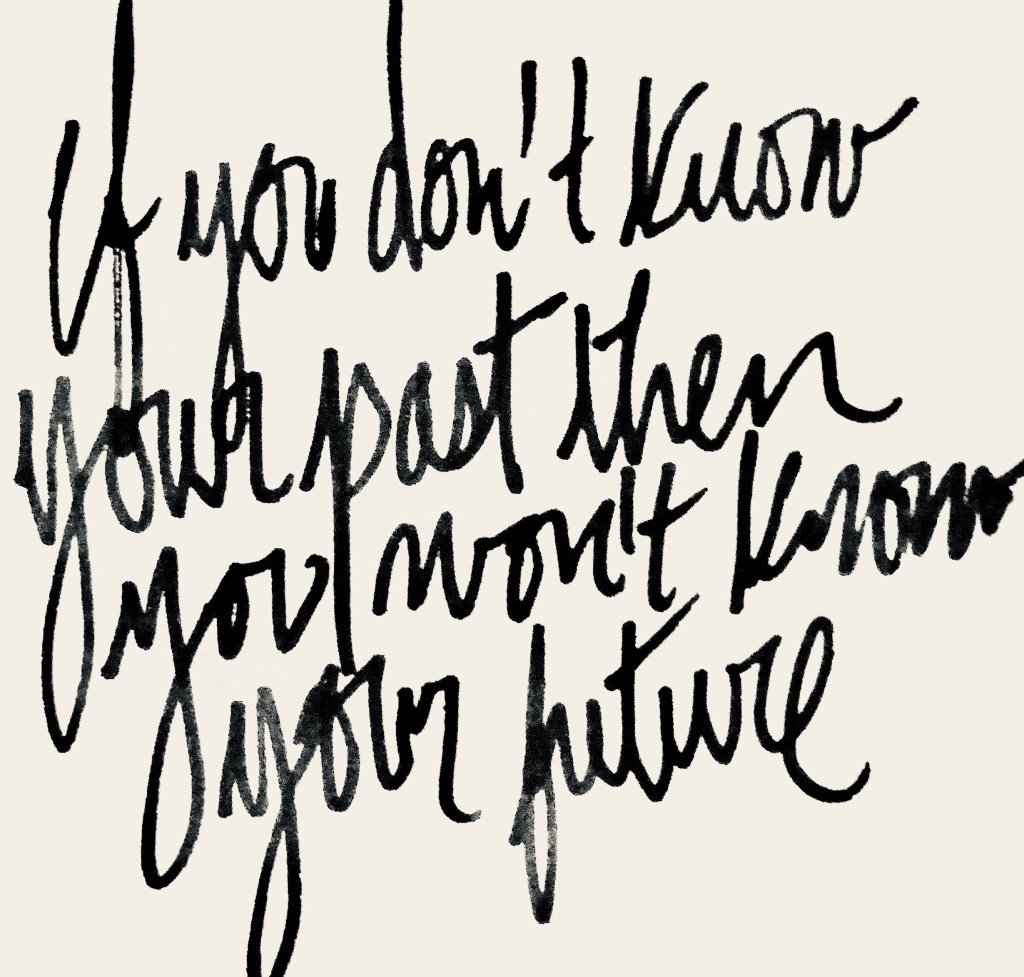 If you don't know
your past then
you won't know
your future